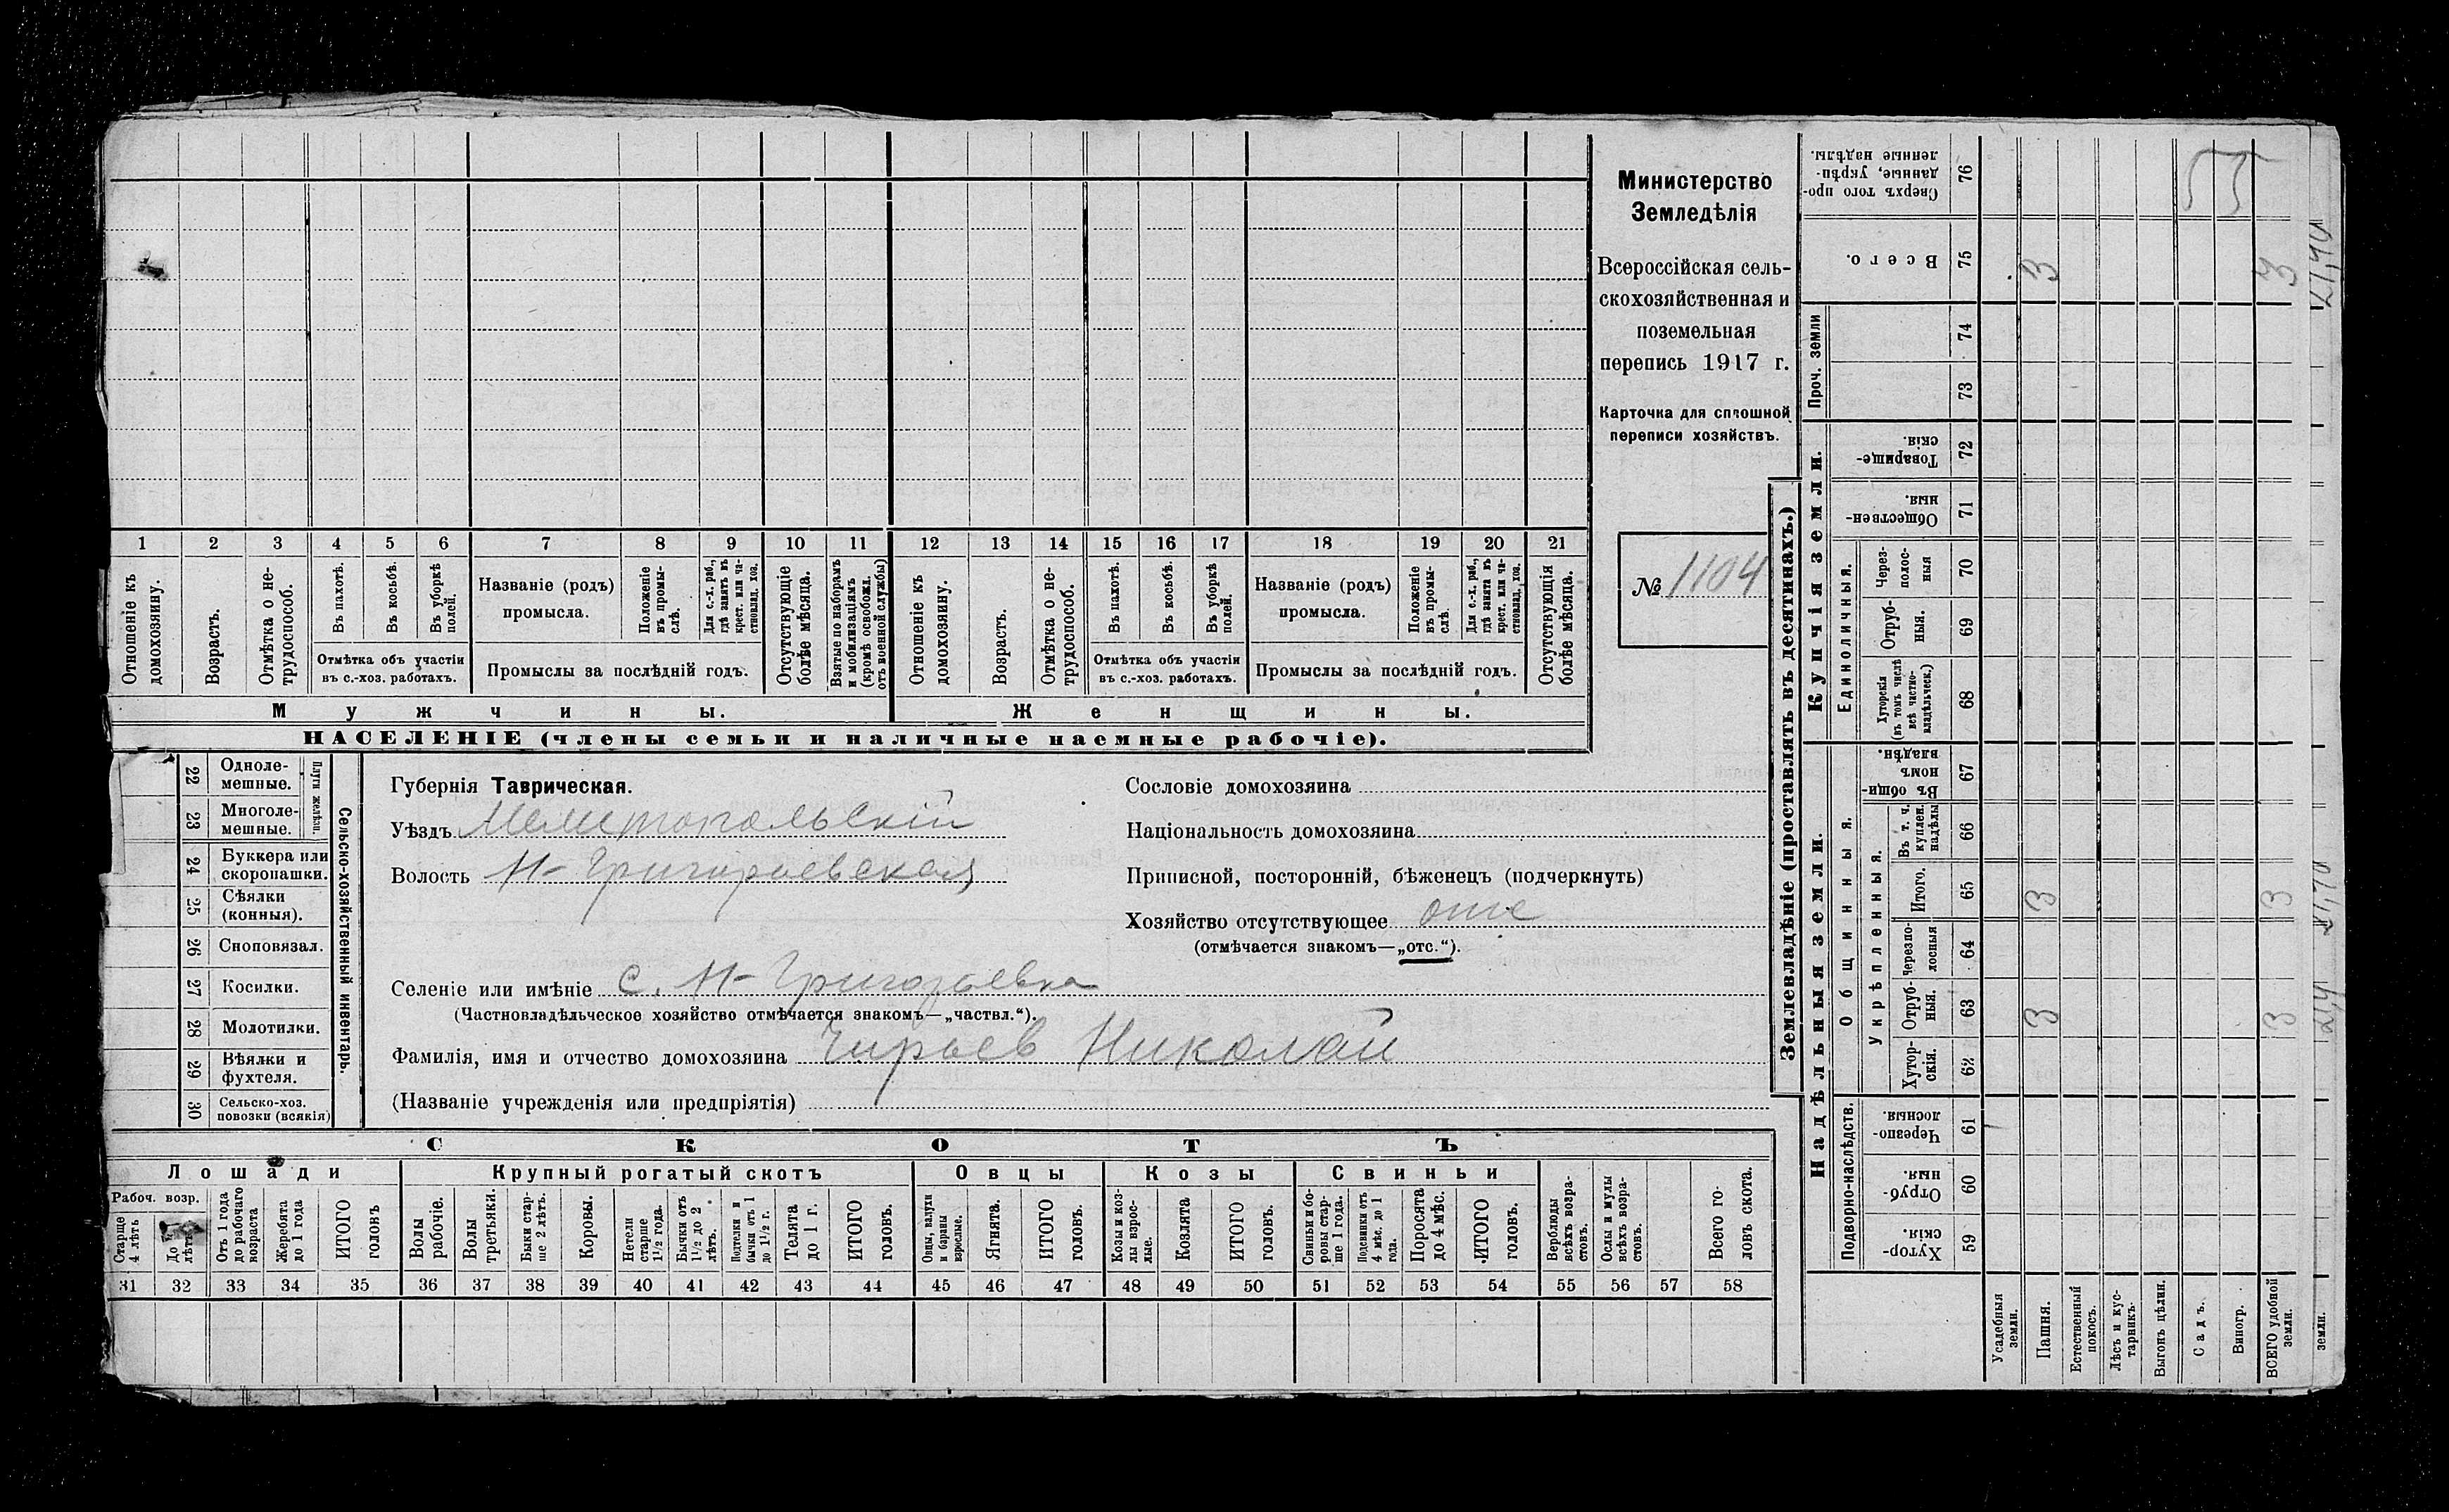 Министерство
Земледѣлія
Всероссійская сель-
скохозяйственная и
поземельная
перепись 1917 г.
Карточка для сплошной
переписи хозяйствъ.
№ 1104
1 2 3 4 5 6 7 8 9 10 11 12 13 14 15 16 17 18 19 20 21
Отношеніе къ домохозяину.
Возрастъ.
Отмѣтка о не-трудоспособ.
Въ пахотѣ.
Въ косьбѣ.
Въ уборкѣ полей.
Отмѣтка объ участіи
въ с.-хоз. работахъ.
Названіе (родъ)
промысла.
Положеніе въ промы-слѣ.
Для с.-х. раб., гдѣ занятъ въ крест. или ча-стновлад. хоз.
Промыслы за послѣдній годъ.
Отсутствующіе болѣе мѣсяца.
Взятые по наборамъ и мобилизаціямъ (кромѣ освобожд. отъ военной службы)
Отношеніе къ домохозяину.
Возрастъ.
Отмѣтка о не-трудоспособ.
Въ пахотѣ.
Въ косьбѣ.
Въ уборкѣ полей.
Отмѣтка объ участіи
въ с.-хоз. работахъ.
Названіе (родъ)
промысла.
Положеніе въ промы-слѣ.
Для с.-х. раб., гдѣ занята въ крест. или ча-стновлад. хоз.
Промыслы за послѣдній годъ.
Отсутствующія болѣе мѣсяца.
Мужчины.
Женщины.
НАСЕЛЕНІЕ (члены семьи и наличные наемные рабочіе).
Сельско-хозяйственный инвентарь.
Плуги желѣзн.
22 Одноле-мешные.
23 Многоле-мешные.
24 Буккера или скоропашки.
25 Сѣялки (конныя).
26 Сноповязал.
27 Косилки.
28 Молотилки.
29 Вѣялки и фухтеля.
30 Сельско-хоз. повозки (всякія)
Губернія Таврическая.
Уѣздъ Мелитопольскій
Волость Н-Григорьевская
Сословіе домохозяина
Національность домохозяина
Приписной, посторонній, бѣженецъ (подчеркнуть)
Хозяйство отсутствующее отс
(отмѣчается знакомъ—„отс.“).
Селеніе или имѣніе с. Н-Григорьевка
(Частновладѣльческое хозяйство отмѣчается знакомъ—„частвл.“).
Фамилія, имя и отчество домохозяина Чирьев Николай
(Названіе учрежденія или предпріятія)
СКОТЪ
Лошади
Крупный рогатый скотъ
Овцы
Козы
Свиньи
Рабоч. возр.
Старше 4 лѣтъ
До лѣтъ
Отъ 1 года до рабочаго возраста
Жеребята до 1 года
ИТОГО головъ
Волы рабочіе.
Волы третьяки.
Быки стар-ше 2 лѣтъ.
Коровы.
Нетели старше 1½ года.
Бычки отъ 1½ до 2 лѣтъ.
Подтелки и бычки отъ 1 до 1½ г.
Телята до 1 г.
ИТОГО головъ.
Овцы, валухи и бараны взрослые.
Ягнята.
ИТОГО головъ.
Козы и коз-лы взрос-лые.
Козлята
ИТОГО головъ.
Свиньи и бо-ровы стар-ше 1 года.
Подсвинки отъ 4 мѣс. до 1 года.
Поросята до 4 мѣс.
ИТОГО головъ.
Верблюды всѣхъ возра-стовъ.
Ослы и мулы всѣхъ возра-стовъ.
Всего го-ловъ скота.
31 32 33 34 35 36 37 38 39 40 41 42 43 44 45 46 47 48 49 50 51 52 53 54 55 56 57 58
Землевладѣніе (проставлять въ десятинахъ.)
Надѣльныя земли.
Купчія земли.
Проч. земли
Подворно-наслѣдств.
Общинныя.
Укрѣпленныя.
Единоличныя.
76 Сверхъ того про-данные, укрѣп-ленные надѣлы.
75 Всего. 3 3
74
73
72 Товарище-скія.
71 Обществен-ныя.
70 Через-полос-ныя
69 Отруб-ныя.
68 Хуторскія (въ томъ числѣ всѣ частно-владѣльческ.)
67 Въ общин-номъ владѣн.
66 Въ т. ч. куплен. надѣлы
65 Итого. 3 3
64 Черезпо-лосныя
63 Отруб-ныя. 3 3
62 Хутор-скія.
61 Черезпо-лосныя.
60 Отруб-ныя.
59 Хутор-скія.
Усадебныя земли.
Пашня.
Естественный покосъ.
Лѣсъ и кус-тарникъ.
Выгонъ цѣлин.
Садъ.
Виногр.
ВСЕГО удобной земли.
земли.